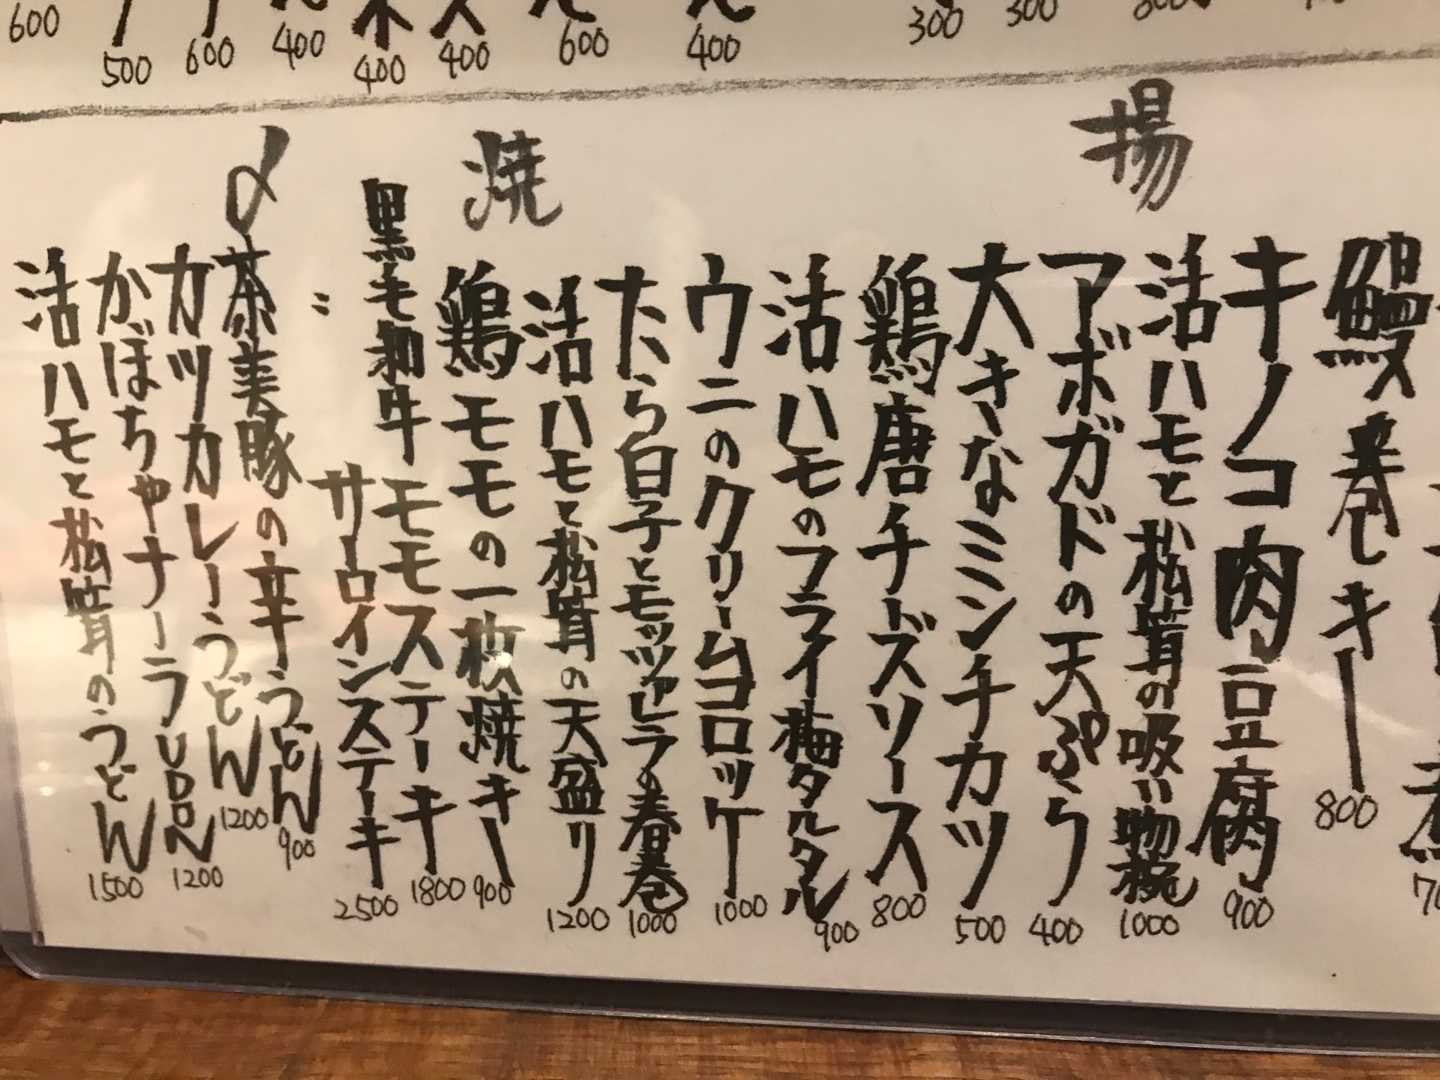 600
500
600
400
400
400
600
400
300
300
鰻巻しキー
800
キノコ肉豆腐
900
活ハモと松茸の吸い物椀
1000
揚
アボガドの天ぷら
400
大きなミンチカツ
500
鶏唐チーズソース
800
活ハモのフライ梅タルタル
900
ウニのクリームコロッケ
1000
たら白子とモッツァレラの春巻
1000
活ハモと松茸の天盛り
1200
焼
鶏モモの一枚焼きー
900
黒毛和牛モモステーキ
1800
〃 サーロインステーキ
2500
〆
茶美豚の辛うどん
900
カツカレーうどん
1200
かぼちゃナーラUDON
1200
活ハモと松茸のうどん
1500